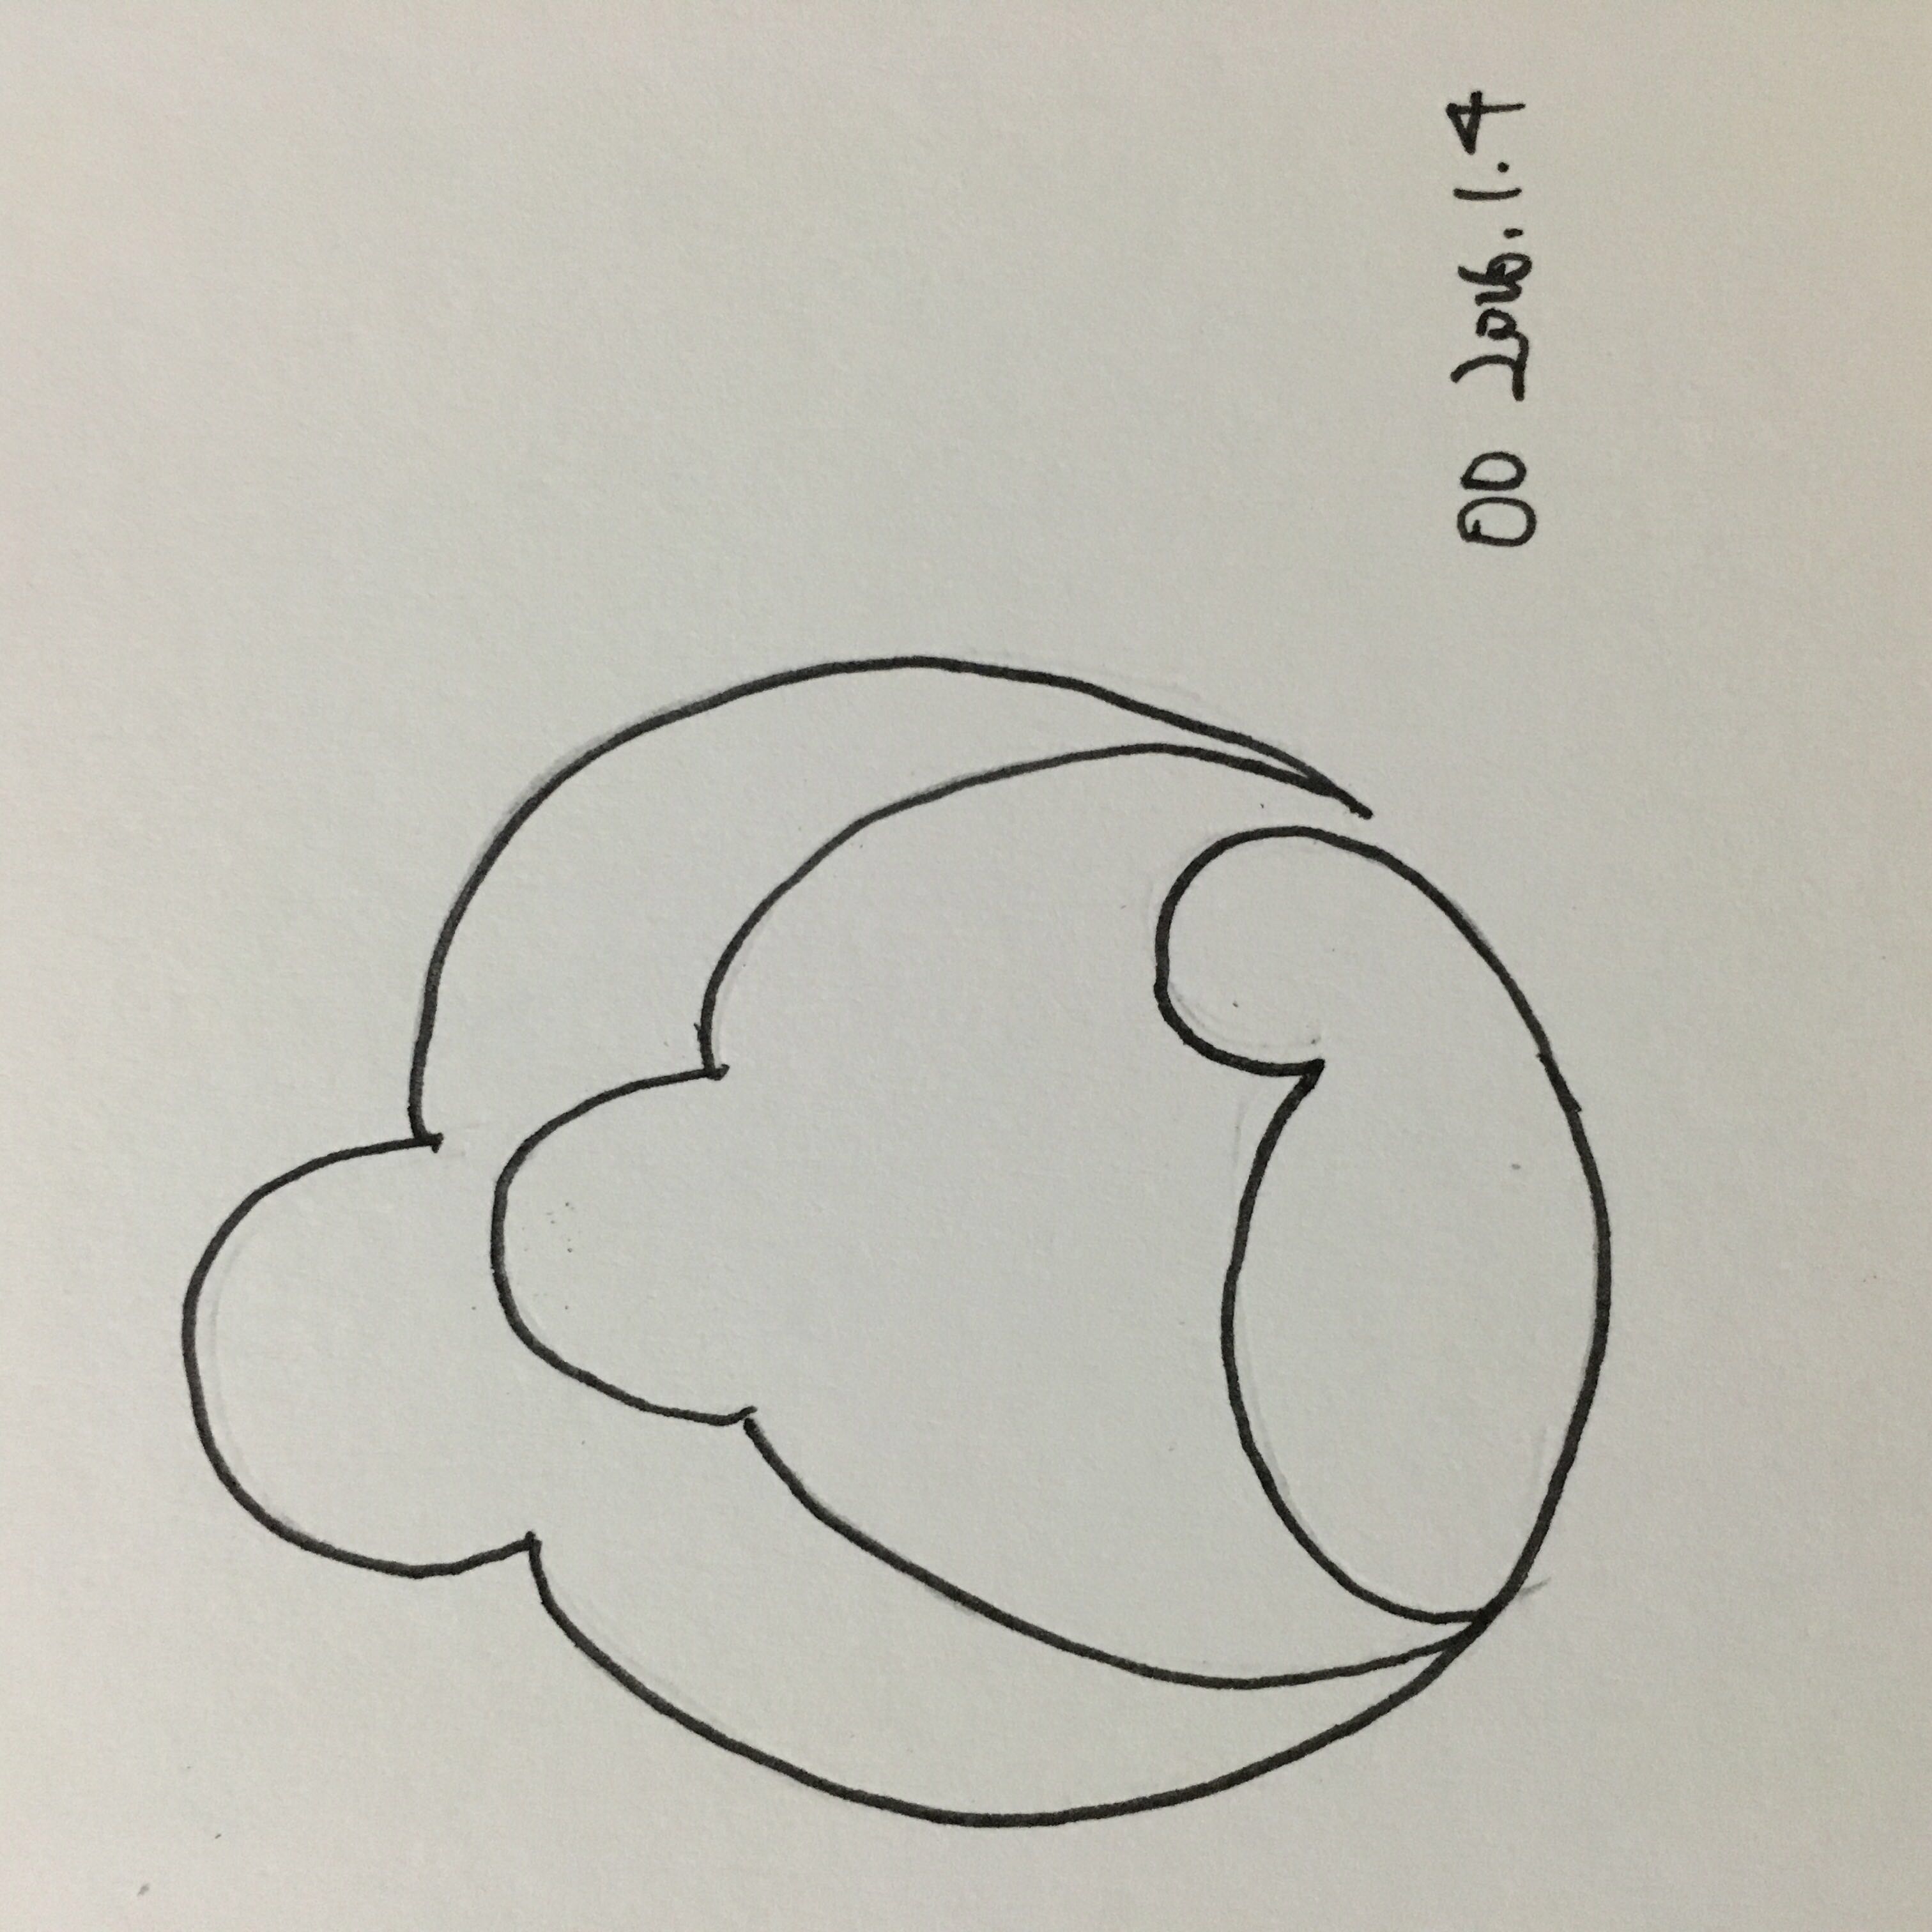 OO 2016.1.4